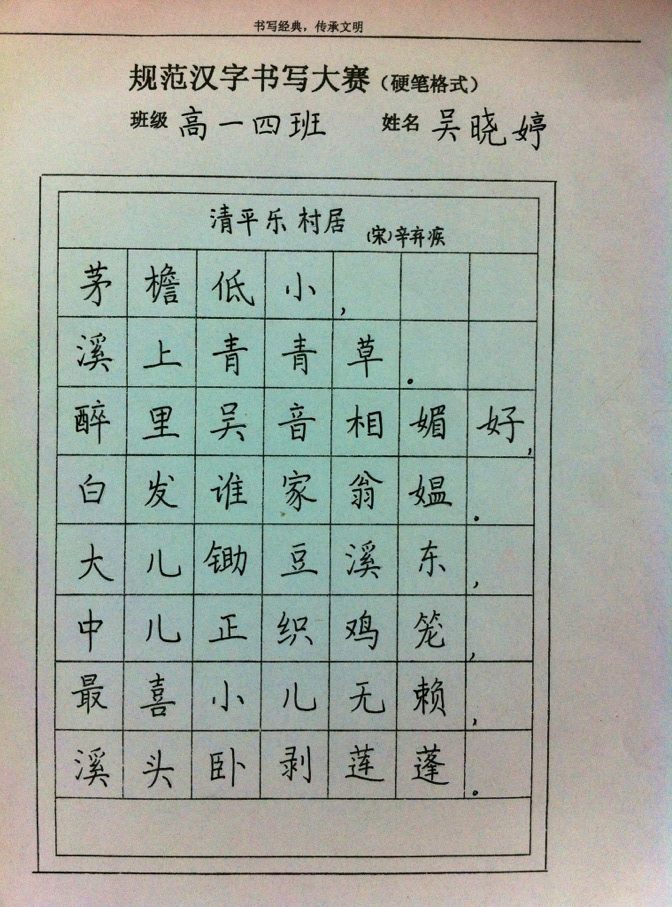 书写经典，传承文明
规范汉字书写大赛（硬笔格式）
班级 高一四班 姓名 吴晓婷
清平乐 村居 （宋）辛弃疾
茅檐低小，
溪上青青草。
醉里吴音相媚好，
白发谁家翁媪。
大儿锄豆溪东，
中儿正织鸡笼，
最喜小儿无赖，
溪头卧剥莲蓬。